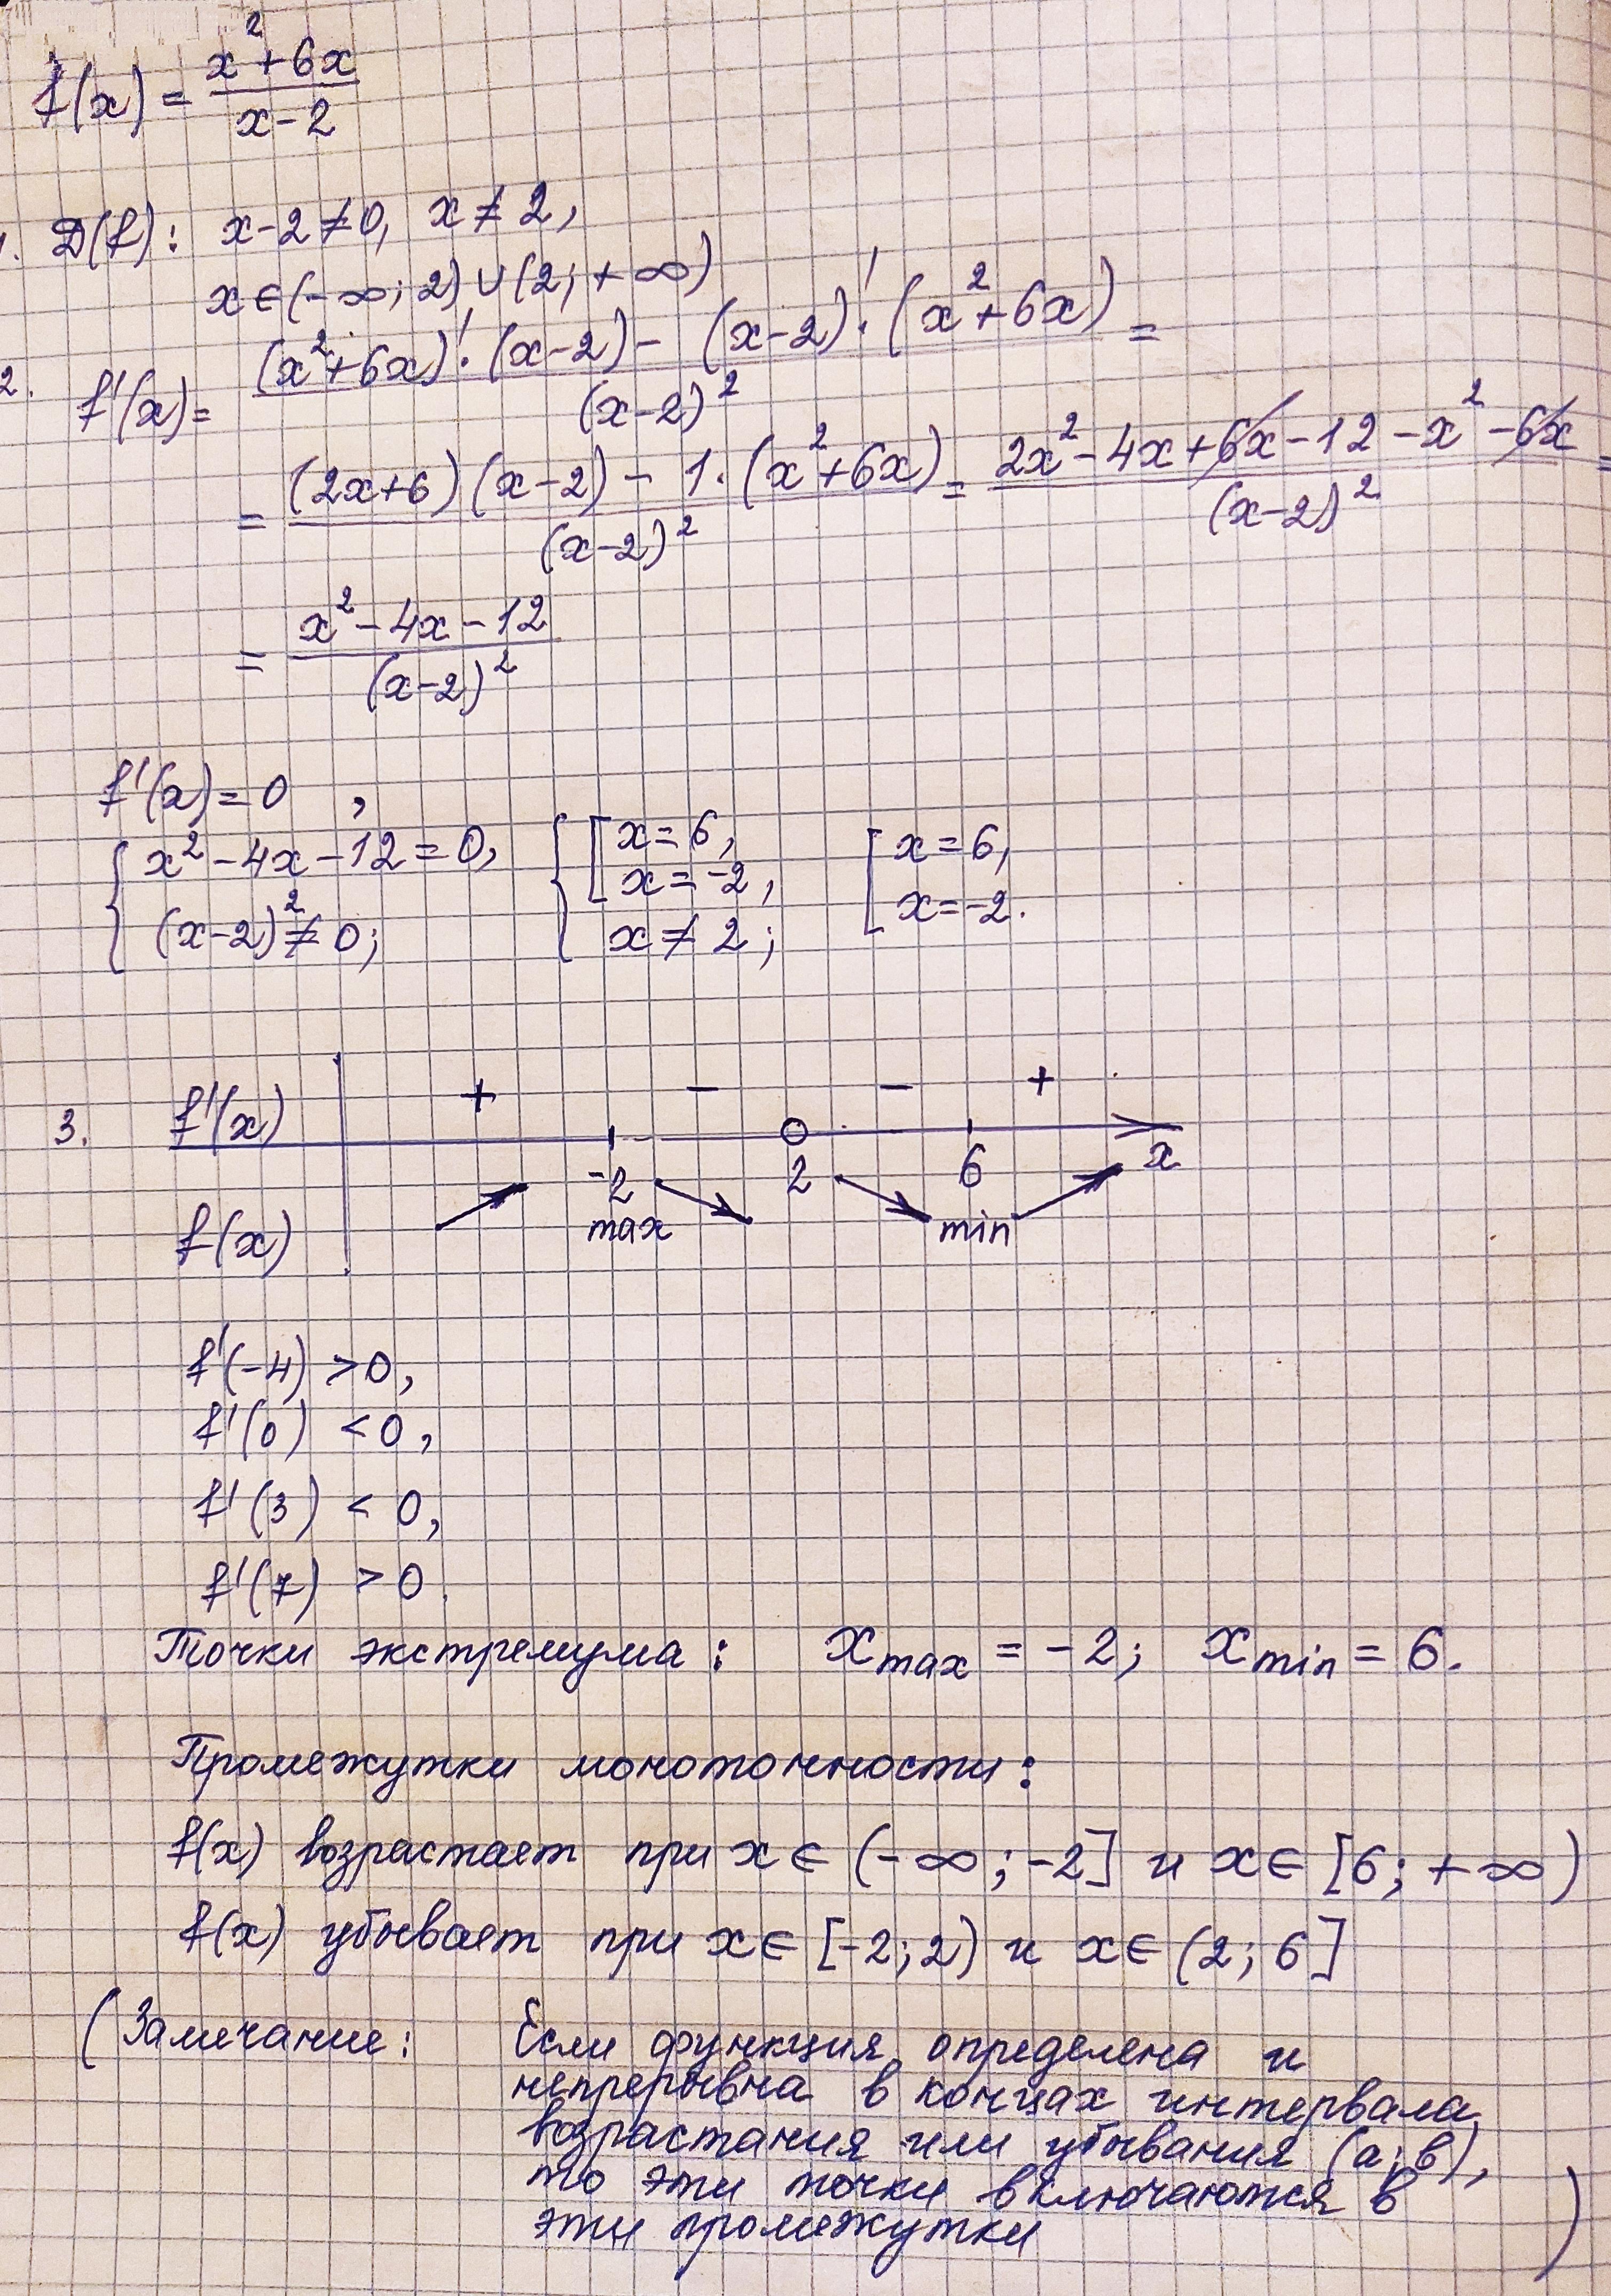 f(x) = (x² + 6x)/(x - 2)
1. D(f): x - 2 ≠ 0, x ≠ 2,
x ∈ (-∞; 2) ∪ (2; +∞)
2. f'(x) = ((x² + 6x)' · (x - 2) - (x - 2)' · (x² + 6x))/(x - 2)² =
= ((2x + 6)(x - 2) - 1 · (x² + 6x))/(x - 2)² = (2x² - 4x + 6x - 12 - x² - 6x)/(x - 2)² =
= (x² - 4x - 12)/(x - 2)²
f'(x) = 0,
{ x² - 4x - 12 = 0, (x - 2)² ≠ 0; { [ x = 6, x = -2, x ≠ 2; [ x = 6, x = -2.
3. f'(x) + - - +
-2 2 6 x
f(x) max min
f'(-4) > 0,
f'(0) < 0,
f'(3) < 0,
f'(7) > 0.
Точки экстремума: x max = -2; x min = 6.
Промежутки монотонности:
f(x) возрастает при x ∈ (-∞; -2] и x ∈ [6; +∞)
f(x) убывает при x ∈ [-2; 2) и x ∈ (2; 6]
(Замечание: Если функция определена и
непрерывна в концах интервала
возрастания или убывания (a; b),
то эти точки включаются в
эти промежутки)